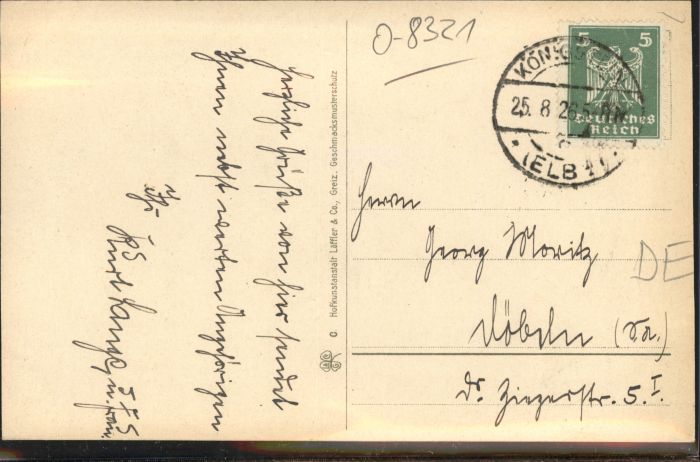 O-8321
5 5
Deutsches
Reich
KÖNIGS
25. 8. 26. 5
(ELBE)
Herzliche Grüße von hier sendet
Ihnen nebst werten Angehörigen
Ihr
Kurt Lange u. Frau
C Hofkunstanstalt Löffler & Co., Greiz. Geschmacksmusterschutz
Herrn
Georg Moritz
Döbeln (Sa.)
Dr. Ziegerstr. 5. I.
DE